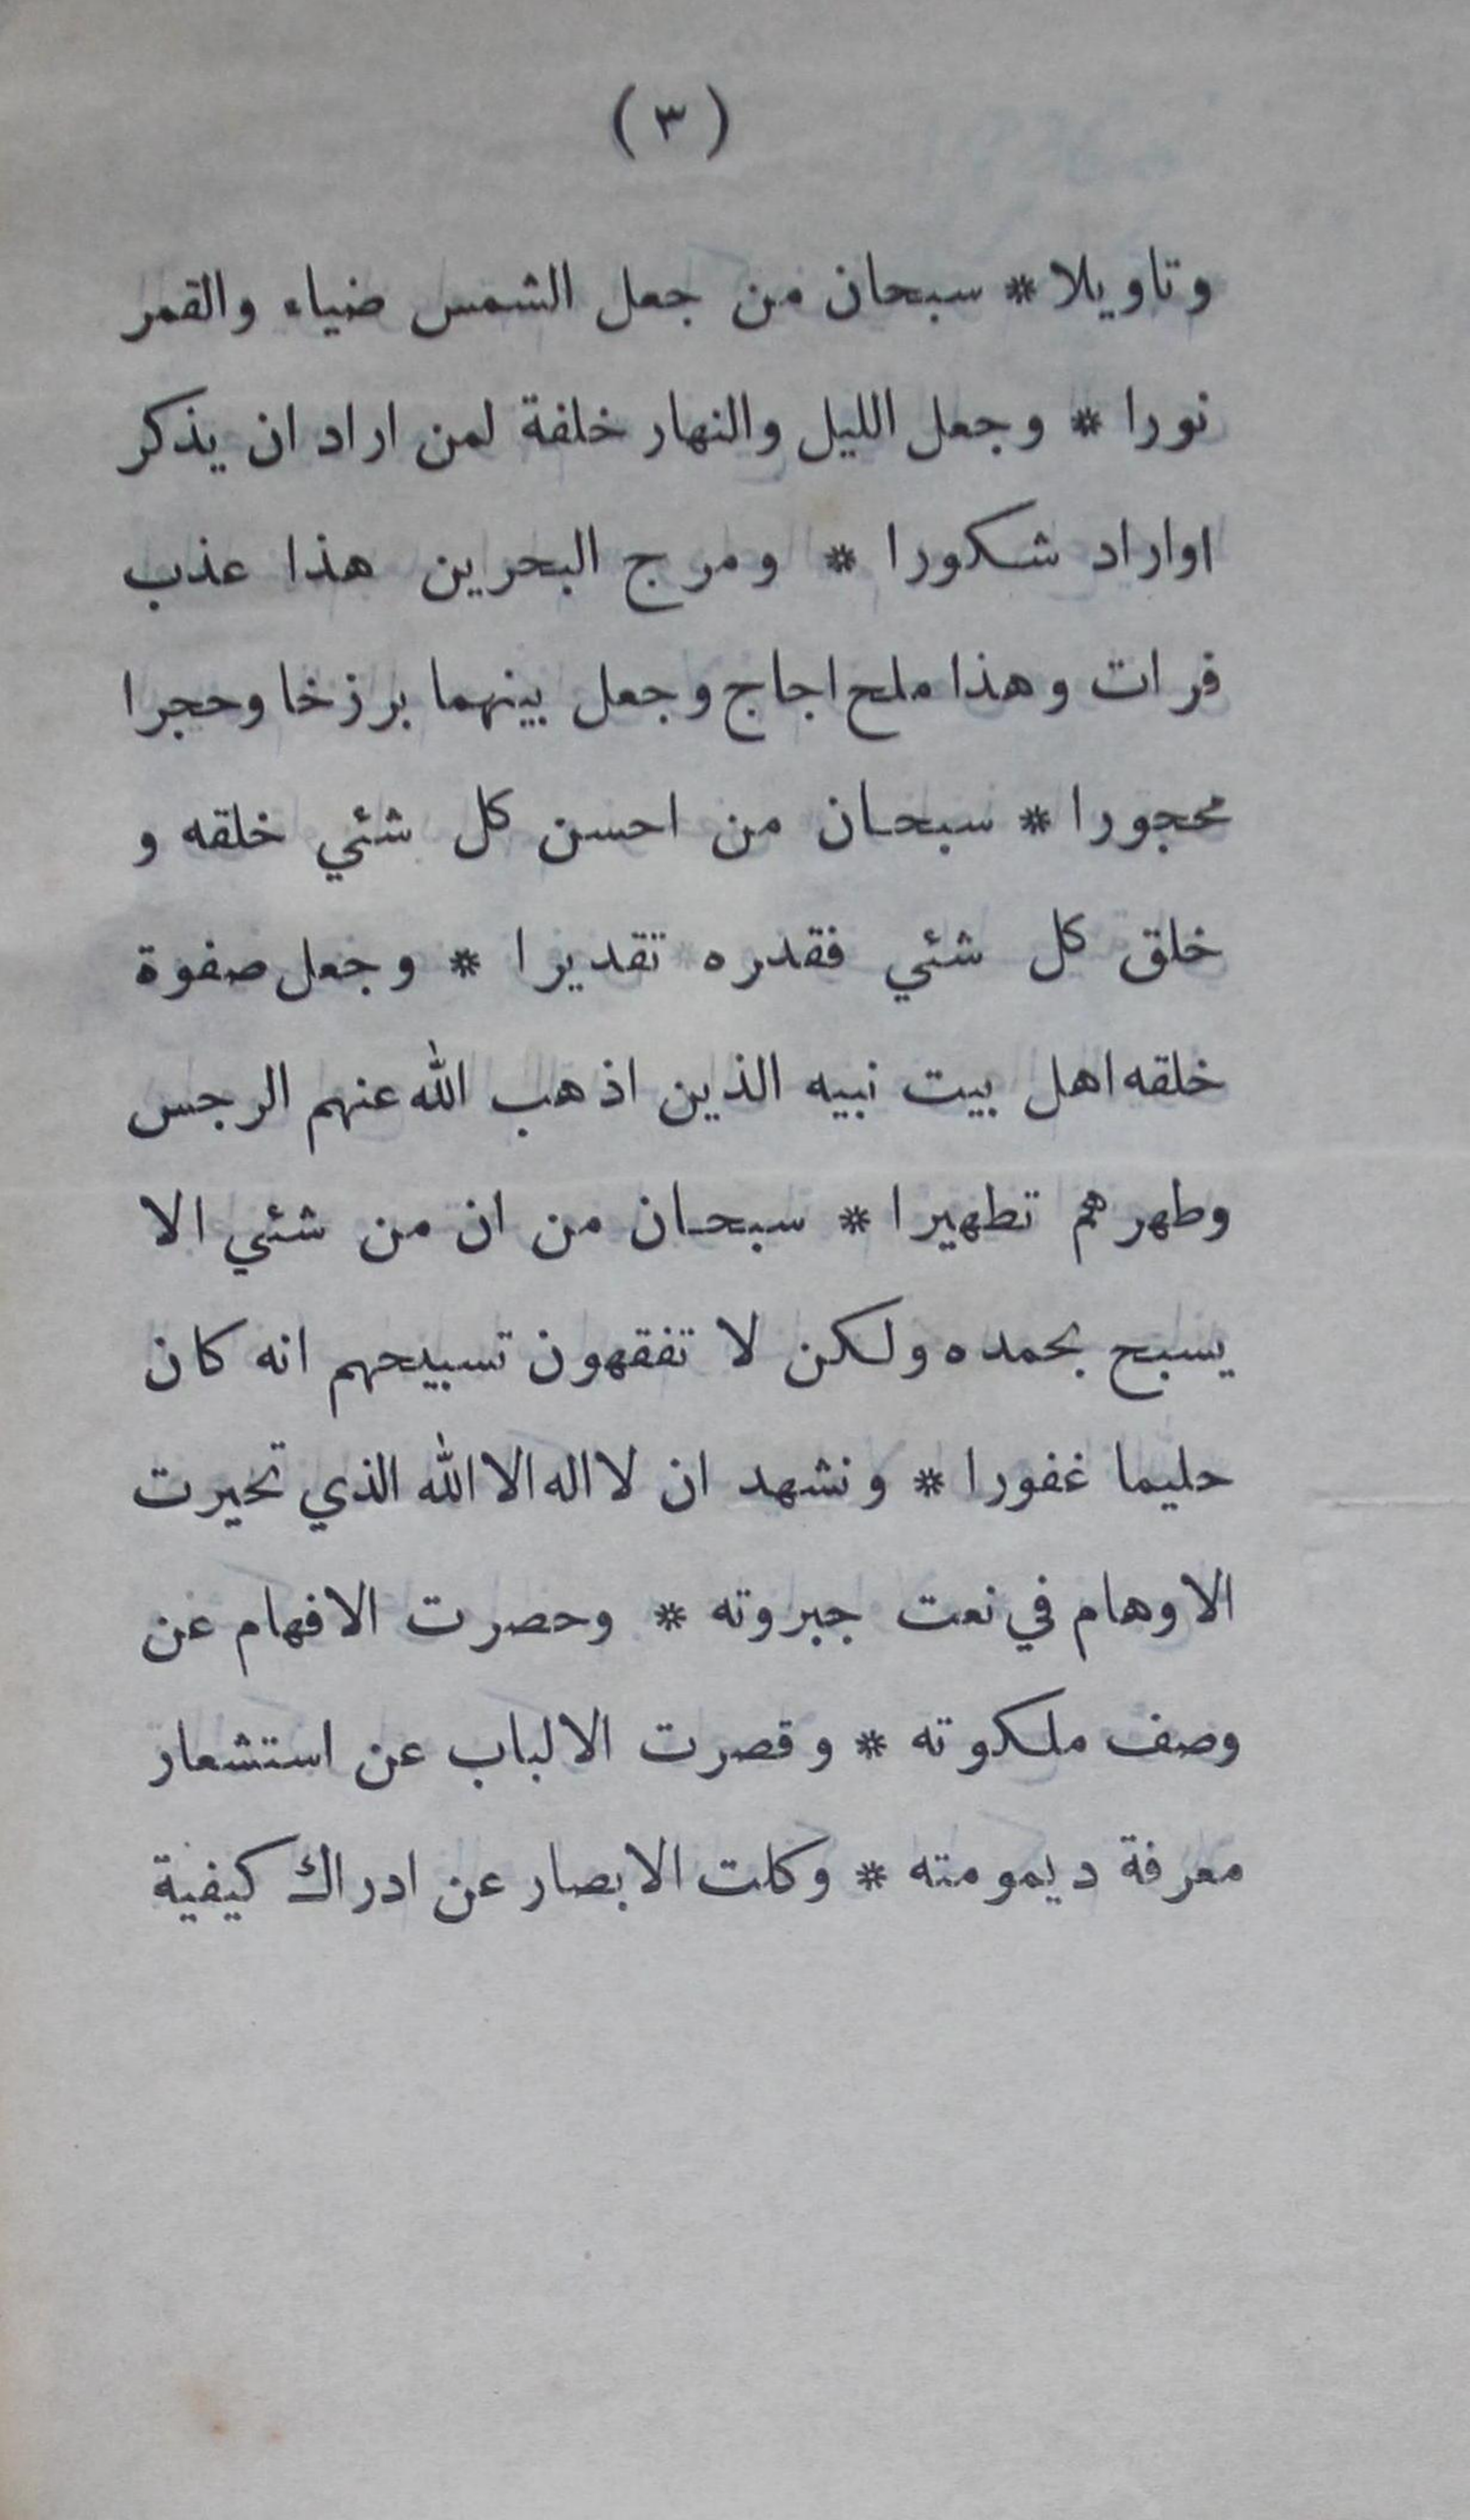 (٣)
وتاويلا * سبحان من جعل الشمس ضياء والقمر
نورا * وجعل الليل والنهار خلفة لمن اراد ان يذكر
اواراد شكورا * ومرج البحرين هذا عذب
فرات وهذا ملح اجاج وجعل بينهما برزخا وحجرا
محجورا * سبحان من احسن كل شئي خلقه و
خلق كل شئي فقدره تقديرا * وجعل صفوة
خلقه اهل بيت نبيه الذين اذهب الله عنهم الرجس
وطهرهم تطهيرا * سبحان من ان من شئي الا
يسبح بحمده ولكن لا تفقهون تسبيحهم انه كان
حليما غفورا * ونشهد ان لا اله الا الله الذي تحيرت
الاوهام في نعت جبروته * وحصرت الافهام عن
وصف ملكوته * وقصرت الالباب عن استشعار
معرفة ديمومته * وكلت الابصار عن ادراك كيفية